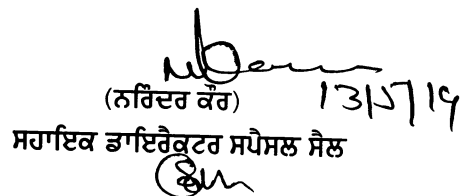 (ਨਰਿੰਦਰ ਕੌਰ) 13/5/19
ਸਹਾਇਕ ਡਾਇਰੈਕਟਰ ਸਪੈਸਲ ਸੈਲ